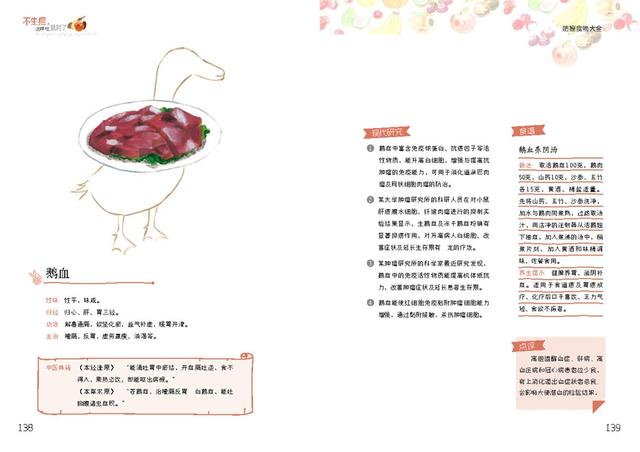 不生癌，
这样吃就对了
防癌食物大全
鹅血
性味 性平，味咸。
归经 归心、肝、胃三经。
功效 解毒通膈，软坚化瘀，益气补虚，暖胃开津。
主治 噎膈，反胃，虚劳羸瘦，消渴等。
中医典籍 《本经逢原》 “能涌吐胃中瘀结，开血膈吐逆，食不
得入，乘热恣饮，即能呕出病根。”
《本草求原》 “苍鹅血，治噎膈反胃 白鹅血，能吐
胸腹诸虫血积。”
138
现代研究
1 鹅血中富含免疫球蛋白、抗癌因子等活
性物质，能升高白细胞，增强与提高抗
肿瘤的免疫能力，可用于消化道淋巴肉
瘤及网状细胞肉瘤的防治。
2 某大学肿瘤研究所的科研人员在对小鼠
肝癌腹水细胞、纤维肉瘤进行的抑制实
验结果显示，生鹅血及冻干鹅血粉确有
显著抑癌作用，对升高病人白细胞、改
善症状及延长生存期有一定的疗效。
3 某肿瘤研究所的科学家最近研究发现，
鹅血中的免疫活性物质能提高机体抵抗
力，改善肿瘤症状及延长患者生存期。
4 鹅血能使红细胞免疫黏附肿瘤细胞能力
增强，通过黏附接触，杀伤肿瘤细胞。
食谱
鹅血养阴汤
做法 取活鹅血100克，鹅肉
50克，山药10克，沙参、玉竹
各15克，黄酒、精盐适量。
先将山药、玉竹、沙参洗净，
加水与鹅肉同煮熟，过滤取汤
汁，用洁净的注射器从活鹅翅
下抽血，加入煮沸的汤中，稍
煮片刻，加入黄酒和味精调
味，佐餐食用。
养生提示 健脾养胃，滋阴补
血。适用于食道癌及胃癌放
疗、化疗后口干喜饮、乏力气
短、食欲不振者。
点评
高胆固醇血症、肝病、高
血压病和冠心病患者应少食，
有上消化道出血症状者忌食，
会影响大便潜血的检验结果。
139